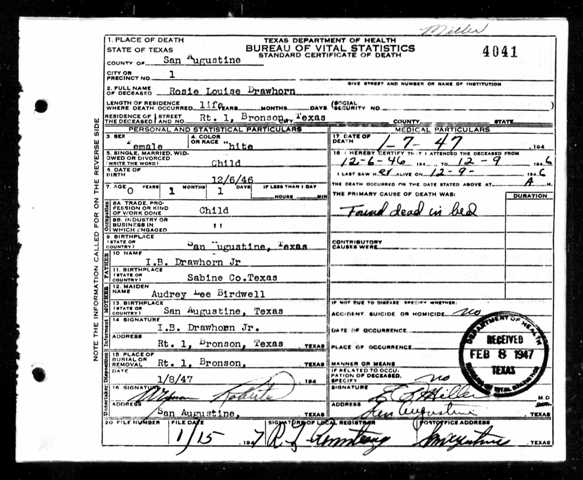 Miller
1. PLACE OF DEATH
STATE OF TEXAS
TEXAS DEPARTMENT OF HEALTH
BUREAU OF VITAL STATISTICS
STANDARD CERTIFICATE OF DEATH
4041
COUNTY OF San Augustine
CITY OR PRECINCT NO. 1
GIVE STREET AND NUMBER OR NAME OF INSTITUTION
2. FULL NAME OF DECEASED Rosie Louise Drawhorn
LENGTH OF RESIDENCE WHERE DEATH OCCURRED life YEARS MONTHS DAYS (SOCIAL SECURITY NO.
RESIDENCE OF THE DECEASED STREET AND NO. Rt. 1, Bronson, Texas COUNTY STATE
PERSONAL AND STATISTICAL PARTICULARS
3 SEX emale
4 COLOR OR RACE hite
5 SINGLE, MARRIED, WIDOWED OR DIVORCED (WRITE THE WORD) Child
6 DATE OF BIRTH 12/6/46
7 AGE 0 YEARS 1 MONTHS 1 DAYS IF LESS THAN 1 DAY HOURS MIN
8A TRADE, PROFESSION OR KIND OF WORK DONE Child
8B INDUSTRY OR BUSINESS IN WHICH ENGAGED "
9 BIRTHPLACE (STATE OR COUNTRY) San Augustine, Texas
FATHER
10 NAME I.B. Drawhorn Jr
11. BIRTHPLACE (STATE OR COUNTRY) Sabine Co.Texas
MOTHER
12. MAIDEN NAME Audrey Lee Birdwell
13. BIRTHPLACE (STATE OR COUNTRY) San Augustine, Texas
14 SIGNATURE I.B. Drawhorn Jr.
ADDRESS Rt. 1, Bronson, Texas TEXAS
15 PLACE OF BURIAL OR REMOVAL Rt. 1, Bronson, TEXAS
DATE 1/8/47 194
16 SIGNATURE Wyman Roberts
ADDRESS San Augustine, TEXAS
MEDICAL PARTICULARS
17 DATE OF DEATH 1-7-47 194
18 I HEREBY CERTIFY THAT I ATTENDED THE DECEASED FROM
12-6-46 194 TO 12-9 1946
I LAST SAW her ALIVE ON 12-9- 1946
THE DEATH OCCURRED ON THE DATE STATED ABOVE AT A M
THE PRIMARY CAUSE OF DEATH WAS: DURATION
Found dead in bed
CONTRIBUTORY CAUSES WERE:
IF NOT DUE TO DISEASE, SPECIFY WHETHER:
ACCIDENT SUICIDE OR HOMICIDE no
DATE OF OCCURRENCE
PLACE OF OCCURRENCE
MANNER OR MEANS
IF RELATED TO OCCUPATION OF DECEASED, SPECIFY no
SIGNATURE Miller M.D.
ADDRESS San Augustine TEXAS
DEPARTMENT OF HEALTH
RECEIVED
FEB 8 1947
TEXAS
20 FILE NUMBER
FILE DATE 1/15 1947
SIGNATURE OF LOCAL REGISTRAR R. S. Armstrong
POSTOFFICE ADDRESS San Augustine TEXAS
NOTE THE INFORMATION CALLED FOR ON THE REVERSE SIDE